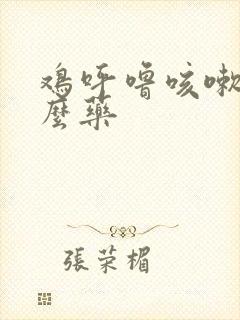 鸡呼噜咳嗽
麼藥
張荣楣